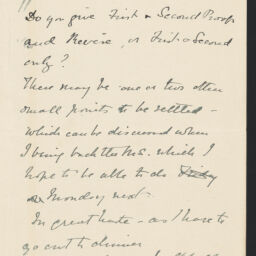 Do you give First & Second Proofs
and Revise, or First & Second
only?
There may be one or two other
small points to be settled -
which can be discussed when
I bring back the M.S. which I
hope to be able to do Friday
or Monday next -
In great haste - as I have to
go out to dinner